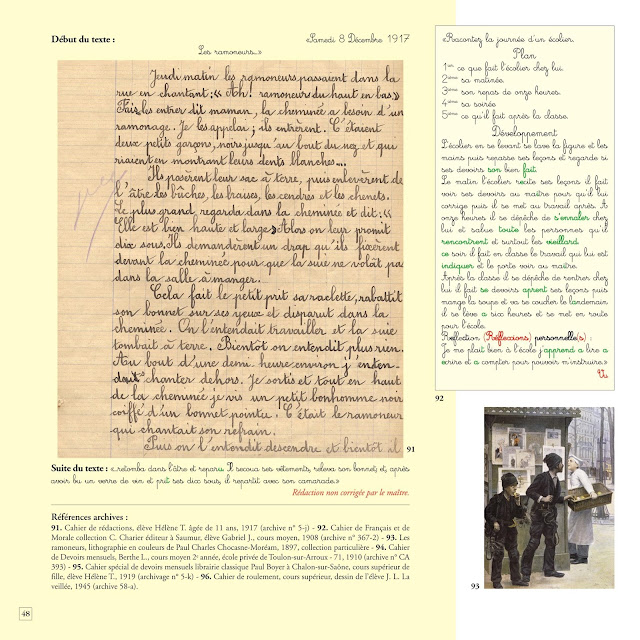 Début du texte :
«Samedi 8 Décembre 1917
Les ramoneurs...»
Jeudi matin les ramoneurs passaient dans la
rue en chantant : « Ah ! ramoneurs du haut en bas »
Fais les entrer dit maman, la cheminée a besoin d'un
ramonage. Je les appelai ; ils entrèrent. C'étaient
deux petits garçons, noirs jusqu'au bout du nez et qui
riaient en montrant leurs dents blanches...
Ils posèrent leur sac à terre, puis enlevèrent de
l'âtre les bûches, les braises, les cendres et les chenets.
Le plus grand, regarda dans la cheminée et dit : «
Elle est bien haute et large» Alors on leur promit
dix sous, ils demandèrent un drap qu'ils fixèrent
devant la cheminée pour que la suie ne volât pas
dans la salle à manger.
Cela fait le petit prit sa raclette, rabattit
son bonnet sur ses yeux et disparut dans la
cheminée. On l'entendait travailler et la suie
tombait à terre. Bientôt on entendit plus rien.
Au bout d'une demi-heure environ j'enten-
dait chanter dehors. Je sortis et tout en haut
de la cheminée je vis un petit bonhomme noir
coiffé d'un bonnet pointu. C'était le ramoneur
qui chantait son refrain.
Puis on l'entendit descendre et bientôt il
91
Suite du texte : «retomba dans l'âtre et reparu. Il secoua ses vêtements, releva son bonnet, et, après
avoir bu un verre de vin et prit ses dix sous, il repartit avec son camarade.»
Rédaction non corrigée par le maître.
Références archives :
91. Cahier de rédactions, élève Hélène T. âgée de 11 ans, 1917 (archive n° 5-j) - 92. Cahier de Français et de
Morale collection C. Charier éditeur à Saumur, élève Gabriel J., cours moyen, 1908 (archive n° 367-2) - 93. Les
ramoneurs, lithographie en couleurs de Paul Charles Chocasne-Moréam, 1897, collection particulière - 94. Cahier
de Devoirs mensuels, Berthe L., cours moyen 2e année, école privée de Toulon-sur-Arroux - 71, 1910 (archive n° CA
393) - 95. Cahier spécial de devoirs mensuels librairie classique Paul Boyer à Chalon-sur-Saône, cours supérieur de
fille, élève Hélène T., 1919 (archivage n° 5-k) - 96. Cahier de roulement, cours supérieur, dessin de l'élève J. L. La
veillée, 1945 (archive 58-a).
48
«Racontez la journée d'un écolier.
Plan
1ère ce que fait l'écolier chez lui.
2ème sa matinée.
3ème son repas de onze heures.
4ème sa soirée
5ème ce qu'il fait après la classe.
Développement
L'écolier en se levant se lave la figure et les
mains puis repasse ses leçons et regarde si
ses devoirs son bien fait.
Le matin l'écolier recite ses leçons il fait
voir ses devoirs au maître pour qu'il lui
corrige puis il se met au travail après. A
onze heures il se dépêche de s'ennaler chez
lui et salue toute les personnes qu'il
rencontrent et surtout les vieillard
ce soir il fait en classe le travail qui lui est
indiquer et le porte voir au maître.
Après la classe il se dépêche de rentrer chez
lui il fait se devoirs aprent ses leçons puis
mange la soupe et va se coucher le landemain
il se lève a sicx heures et se met en route
pour l'école.
Reflection (Refleccions) personnelle(s) :
Je me plait bien à l'école j'apprend a lire a
ecrire et a compter pour pouvoir m'instruire.»
92
93